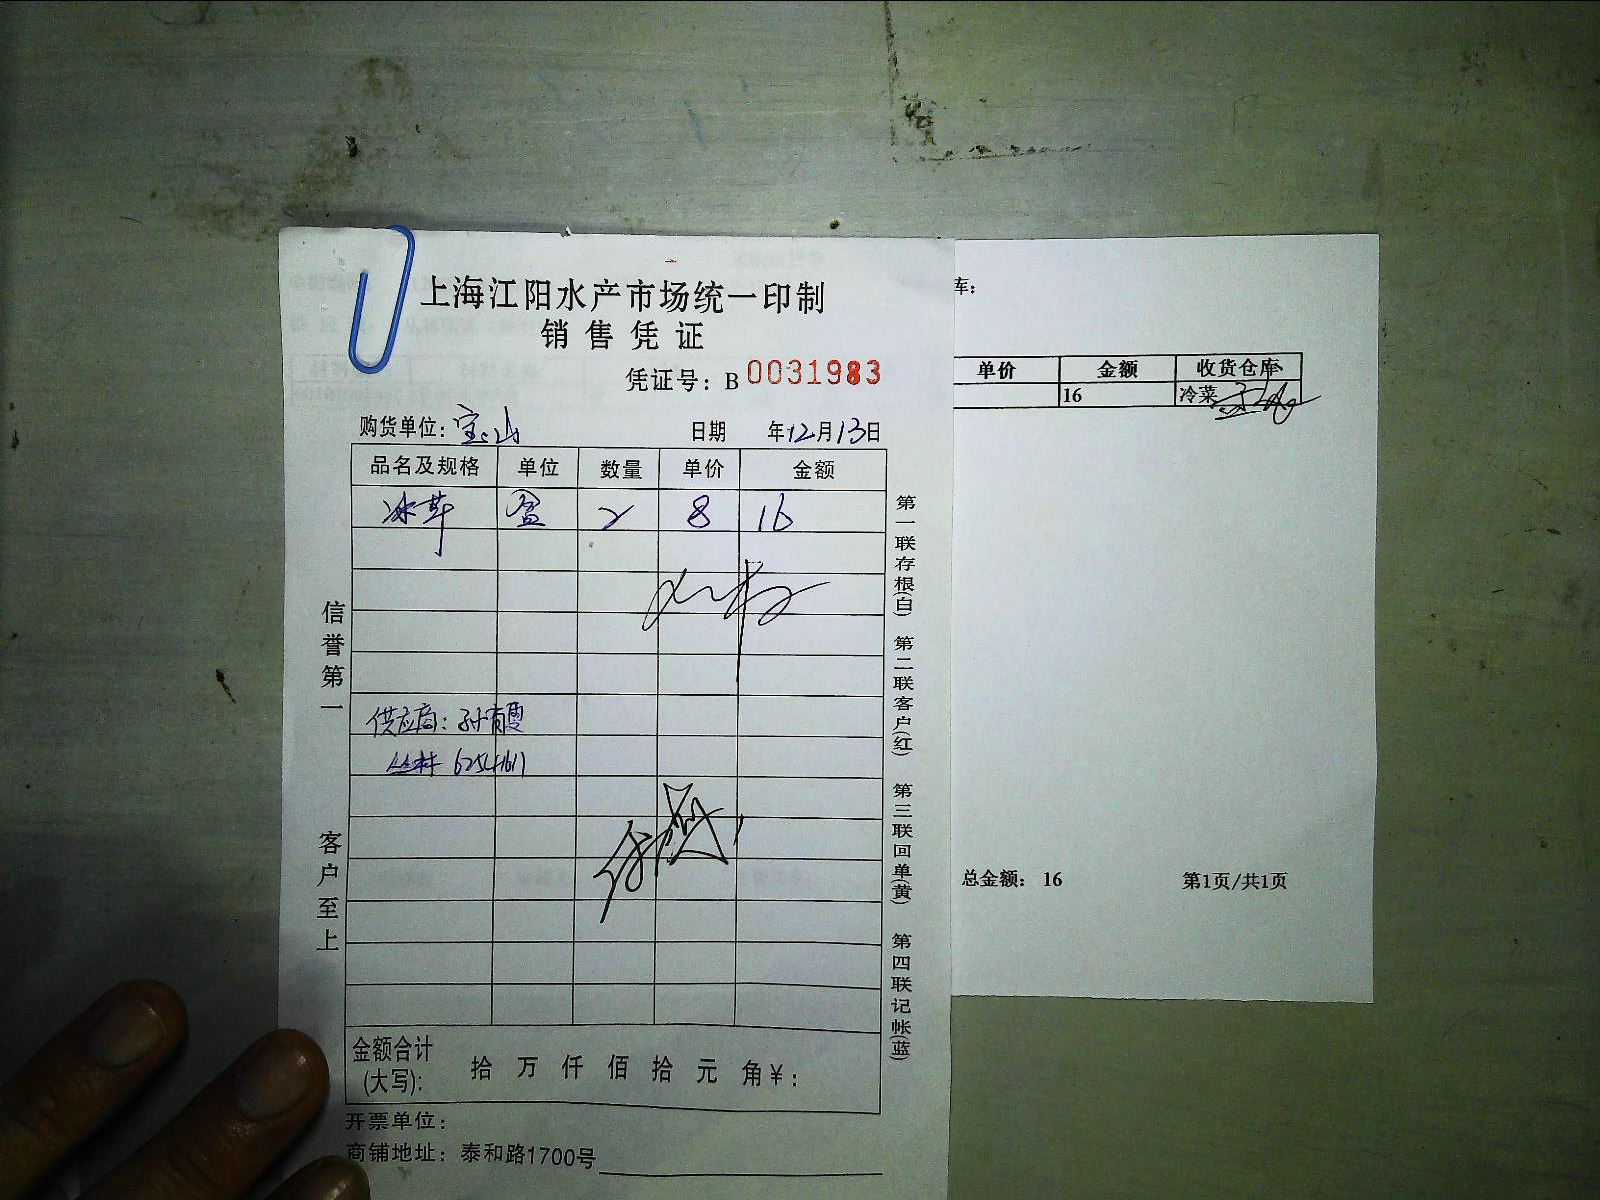 上海江阳水产市场统一印制
销售凭证
凭证号：B 0031983
购货单位：宝山 日期 年12月13日
品名及规格 单位 数量 单价 金额
冰草 盒 2 8 16
供应商：孙青霞
丛林
金额合计(大写)： 拾 万 仟 佰 拾 元 角 ¥：
开票单位：
商铺地址：泰和路1700号
信誉第一
客户至上
第一联存根(白) 第二联客户(红) 第三联回单(黄) 第四联记帐(蓝)
库：
单价 金额 收货仓库
16 冷菜
总金额： 16 第1页/共1页